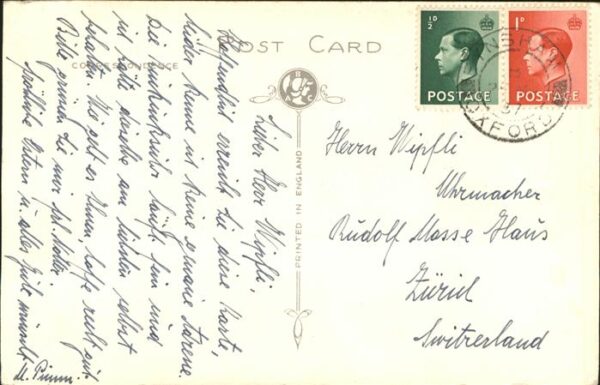 POST CARD
CORRESPONDENCE
Lieber Herr Wipfli,
Hoffentlich erreicht Sie diese Karte,
leider kenne ich keine genaue Adresse.
Die Armbanduhr läuft fein und
ich hätte dieselbe am liebsten selbst
behalten. Wie geht es Ihnen, hoffe recht gut
Bitte grüssen Sie mir
fröhliche Ostern u. alles Gute wünscht
M. Pimm.
PRINTED IN ENGLAND
½D
POSTAGE
1D
POSTAGE
OXFORD
37
Herrn Wipfli
Uhrmacher
Rudolf Mosse Haus
Zürich
Switzerland